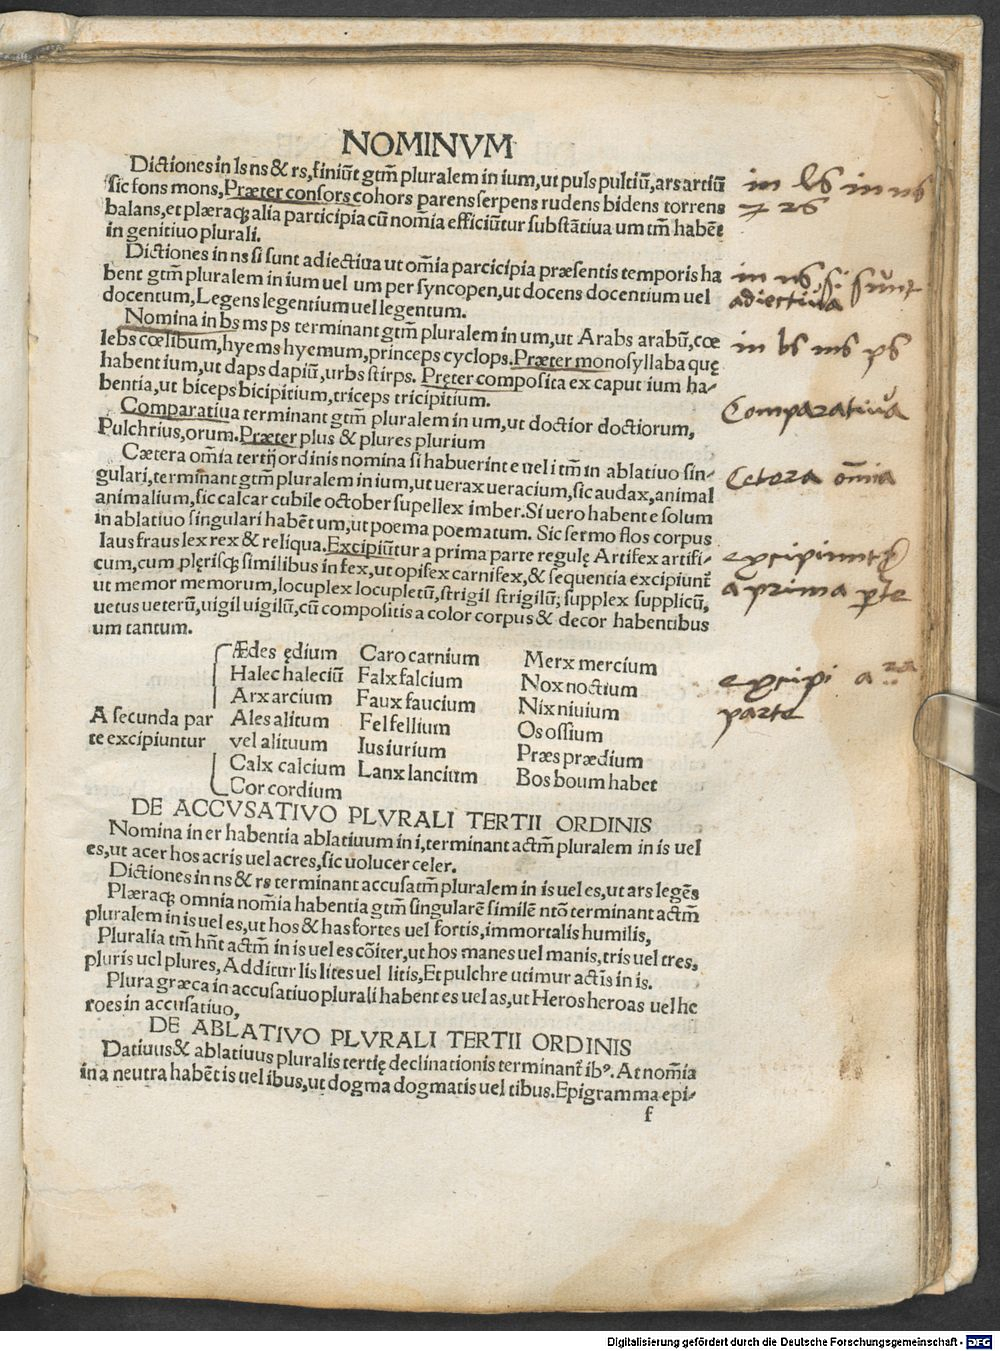 NOMINVM
Dictiones in ls ns & rs, finiūt gtm̄ pluralem in ium, ut puls pultiū, ars artiū
sic fons mons, Præter consors cohors parens serpens rudens bidens torrens
balans, et plæraqꝫ alia participia cū nom̄ia efficiūtur substātiua um tm̄ habēt
in genitiuo plurali.
Dictiones in ns si sunt adiectiua ut om̄ia parcicipia præsentis temporis ha
bent gtm̄ pluralem in ium uel um per syncopen, ut docens docentium uel
docentum, Legens legentium uel legentum.
Nomina in bs ms ps terminant gtm̄ pluralem in um, ut Arabs arabū, cœ
lebs cœlibum, hyems hyemum, princeps cyclops. Præter monosyllaba quę
habent ium, ut daps dapiū, urbs stirps. Pręter composita ex caput ium ha-
bentia, ut biceps bicipitium, triceps tricipitium.
Comparatiua terminant gtm̄ pluralem in um, ut doctior doctiorum,
Pulchrius, orum. Præter plus & plures plurium
Cætera om̄ia tertij ordinis nomina si habuerint e uel i tm̄ in ablatiuo sin-
gulari, terminant gtm̄ pluralem in ium, ut uerax ueracium, sic audax, animal
animalium, sic calcar cubile october supellex imber. Si uero habent e solum
in ablatiuo singulari habēt um, ut poema poematum. Sic sermo flos corpus
laus fraus lex rex & reliqua. Excipiūtur a prima parte regulę Artifex artifi-
cum, cum plęrisqꝫ similibus in fex, ut opifex carnifex, & sequentia excipiunt̄
ut memor memorum, locuplex locupletū, strigil strigilū, supplex supplicū,
uetus ueterū, uigil uigilū, cū compositis a color corpus & decor habentibus
um tantum.
Ædes ędium Caro carnium Merx mercium
Halec haleciū Falx falcium Nox noctium
Arx arcium Faux faucium Nix niuium
A secunda par Ales alitum Fel fellium Os ossium
te excipiuntur vel alituum Ius iurium Præs prædium
Calx calcium Lanx lancium Bos boum habet
Cor cordium
DE ACCVSATIVO PLVRALI TERTII ORDINIS
Nomina in er habentia ablatiuum in i, terminant actm̄ pluralem in is uel
es, ut acer hos acris uel acres, sic uolucer celer.
Dictiones in ns & rs terminant accusatm̄ pluralem in is uel es, ut ars legēs
Plæraqꝫ omnia nom̄ia habentia gtm̄ singularē similē ntō terminant actm̄
pluralem in is uel es, ut hos & has fortes uel fortis, immortalis humilis,
Pluralia tm̄ hn̄t actm̄ in is uel es cōiter, ut hos manes uel manis, tris uel tres,
pluris uel plures, Additur lis lites uel litis, Et pulchre utimur actīs in is.
Plura græca in accusatiuo plurali habent es uel as, ut Heros heroas uel he
roes in accusatiuo,
DE ABLATIVO PLVRALI TERTII ORDINIS
Datiuus & ablatiuus pluralis tertię declinationis terminant̄ ibꝰ. At nom̄ia
in a neutra habēt is uel ibus, ut dogma dogmatis uel tibus. Epigramma epi-
f
in ls in ns
& rs
in ns, si sunt
adiectiua
in bs ms ps
Comparatiua
Cetera om̄ia
excipiuntur
a prima pte
excipi a 2a
parte
Digitalisierung gefördert durch die Deutsche Forschungsgemeinschaft - DFG